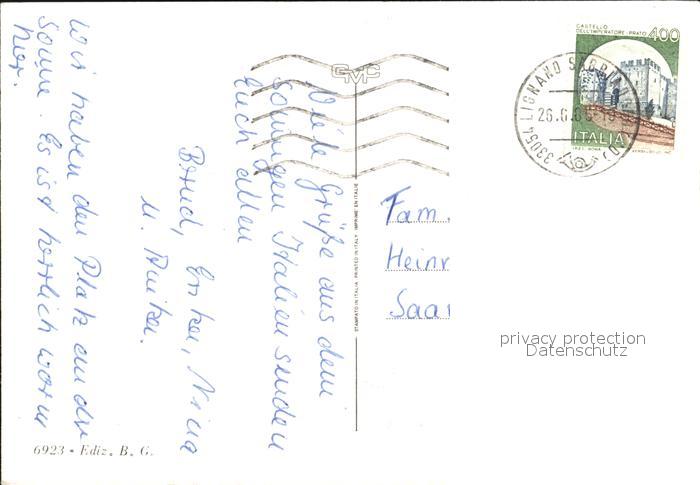 Viele Grüße aus dem
sonnigen Italien senden
Euch allen
Bernd, Erika, Nina
u. Anika.
Wir haben den Platz an der
Sonne. Es ist herrlich warm
hier.
Fam.
Heinr
Saar
6923 - Ediz. B. G.
STAMPATO IN ITALIA - PRINTED IN ITALY - IMPRIMÉ EN ITALIE
GMC
33054 LIGNANO SABBIADORO
26.6.8
CASTELLO
DELL'IMPERATORE - PRATO 400
ITALIA
privacy protection
Datenschutz